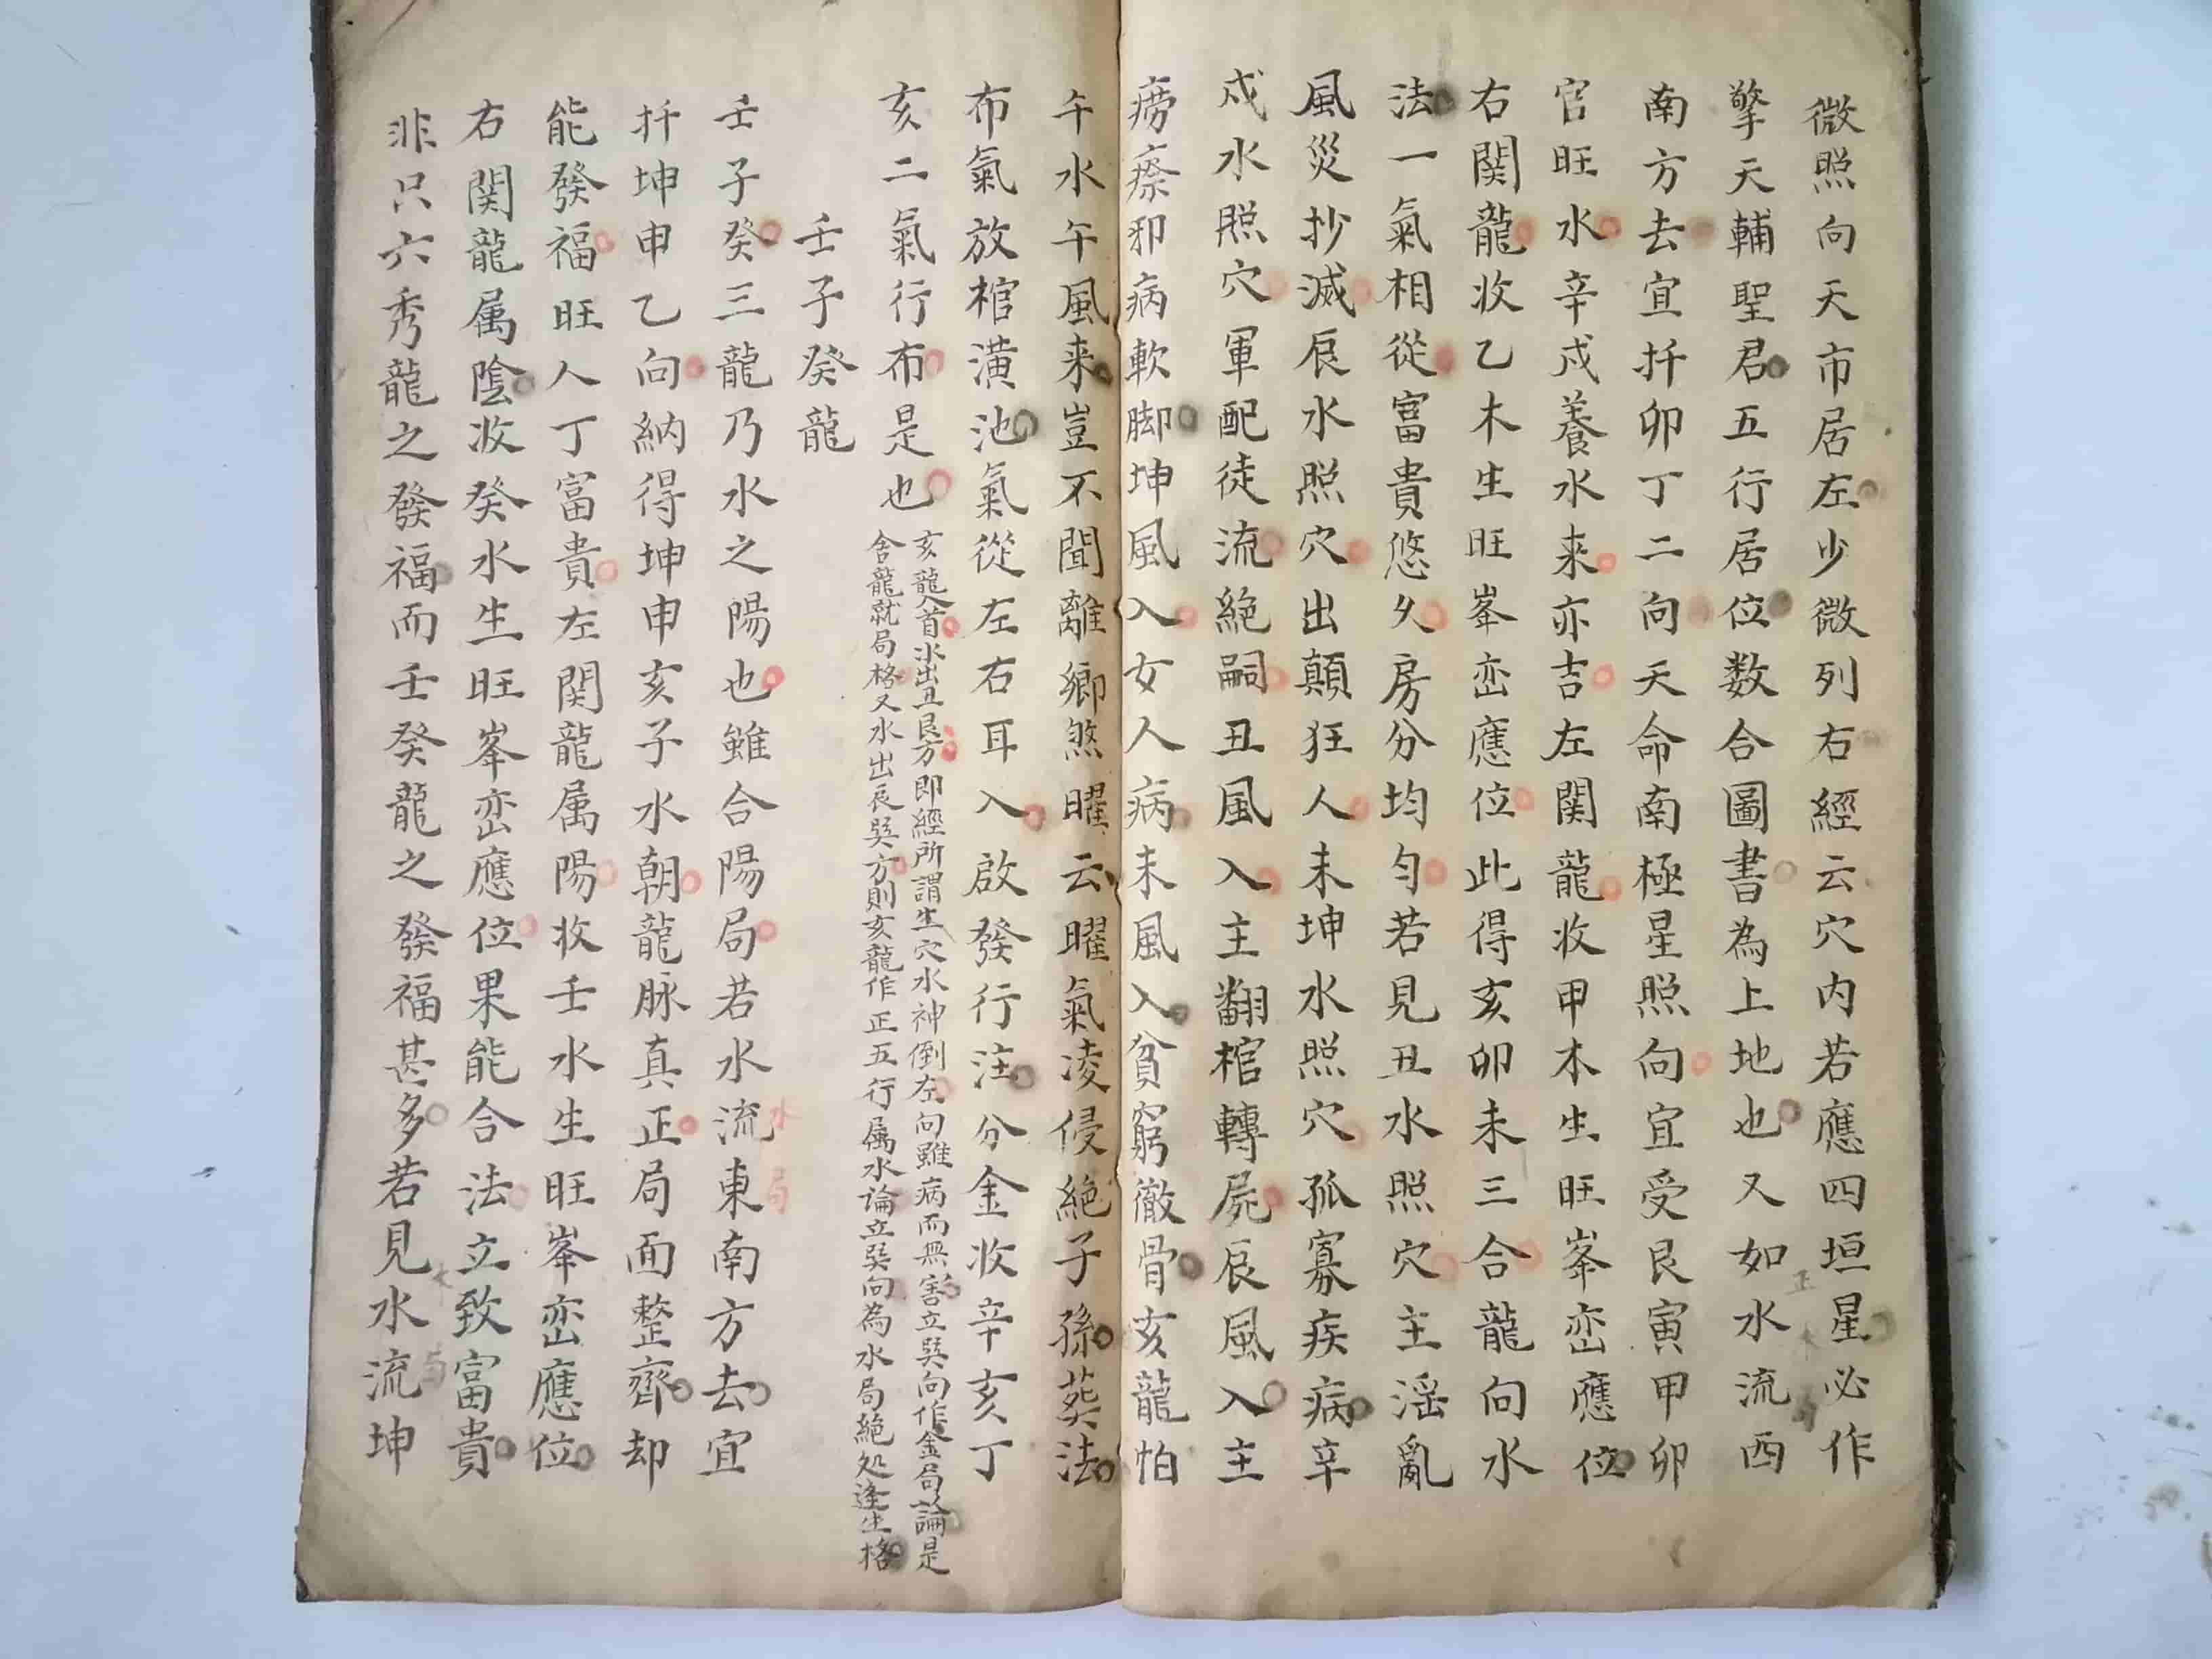 微照向天市居左少微列右經云穴内若應四垣星必作
擎天輔聖君五行居位数合圖書為上地也又如水流西
南方去宜扦卯丁二向天命南極星照向宜受艮寅甲卯
官旺水辛戍養水来亦吉左関龍收甲木生旺峯巒應位
右関龍收乙木生旺峯巒應位此得亥卯未三合龍向水
法一氣相從富貴悠久房分均匀若見丑水照穴主滛亂
風災抄滅辰水照穴出顛狂人未坤水照穴孤寡疾病辛
戍水照穴軍配徒流絕嗣丑風入主翻棺轉屍辰風入主
痨瘵邪病軟脚坤風入女人病未風入貧窮徹骨亥龍怕
午水午風来豈不聞離鄉煞曜云曜氣凌侵絕子孫葬法
布氣放棺潢池氣從左右耳入啟發行注分金收辛亥丁
亥二氣行布是也
亥龍入首水出丑艮方即經所謂生穴水神倒左向雖病而無害立巽向作金局論是
舍龍就局格又水出辰巽方則亥龍作正五行属水論立巽向為水局絕処逢生格
壬子癸龍
壬子癸三龍乃水之陽也雖合陽局若水流東南方去宜
水局
扦坤申乙向納得坤申亥子水朝龍脉真正局面整齊却
能發福旺人丁富貴左関龍属陽收壬水生旺峯巒應位
右関龍属陰收癸水生旺峯巒應位果能合法立致富貴
非只六秀龍之發福而壬癸龍之發福甚多若見水流坤